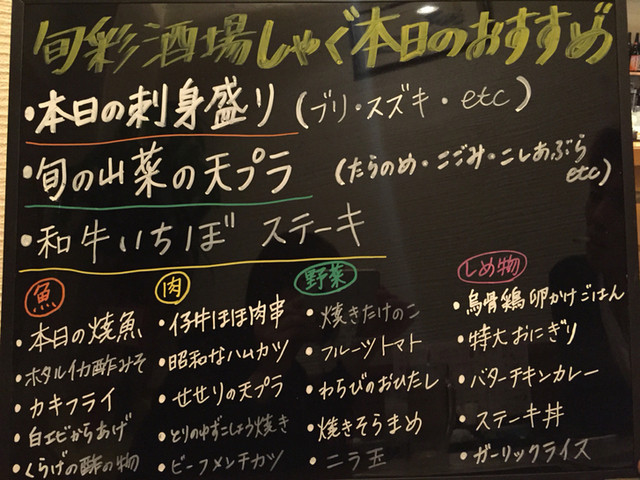 旬彩酒場しゃぐ本日のおすすめ
・本日の刺身盛り (ブリ・スズキ・etc)
・旬の山菜の天プラ (たらのめ・こごみ・こしあぶら etc)
・和牛いちぼ ステーキ
魚
・本日の焼魚
・ホタルイカ酢みそ
・カキフライ
・白エビからあげ
・くらげの酢の物
肉
・仔牛ほほ肉串
・昭和なハムカツ
・せせりの天プラ
・とりのゆずこしょう焼き
・ビーフメンチカツ
野菜
・焼きたけのこ
・フルーツトマト
・わらびのおひたし
・焼きそらまめ
・ニラ玉
しめ物
・烏骨鶏卵かけごはん
・特大おにぎり
・バターチキンカレー
・ステーキ丼
・ガーリックライス